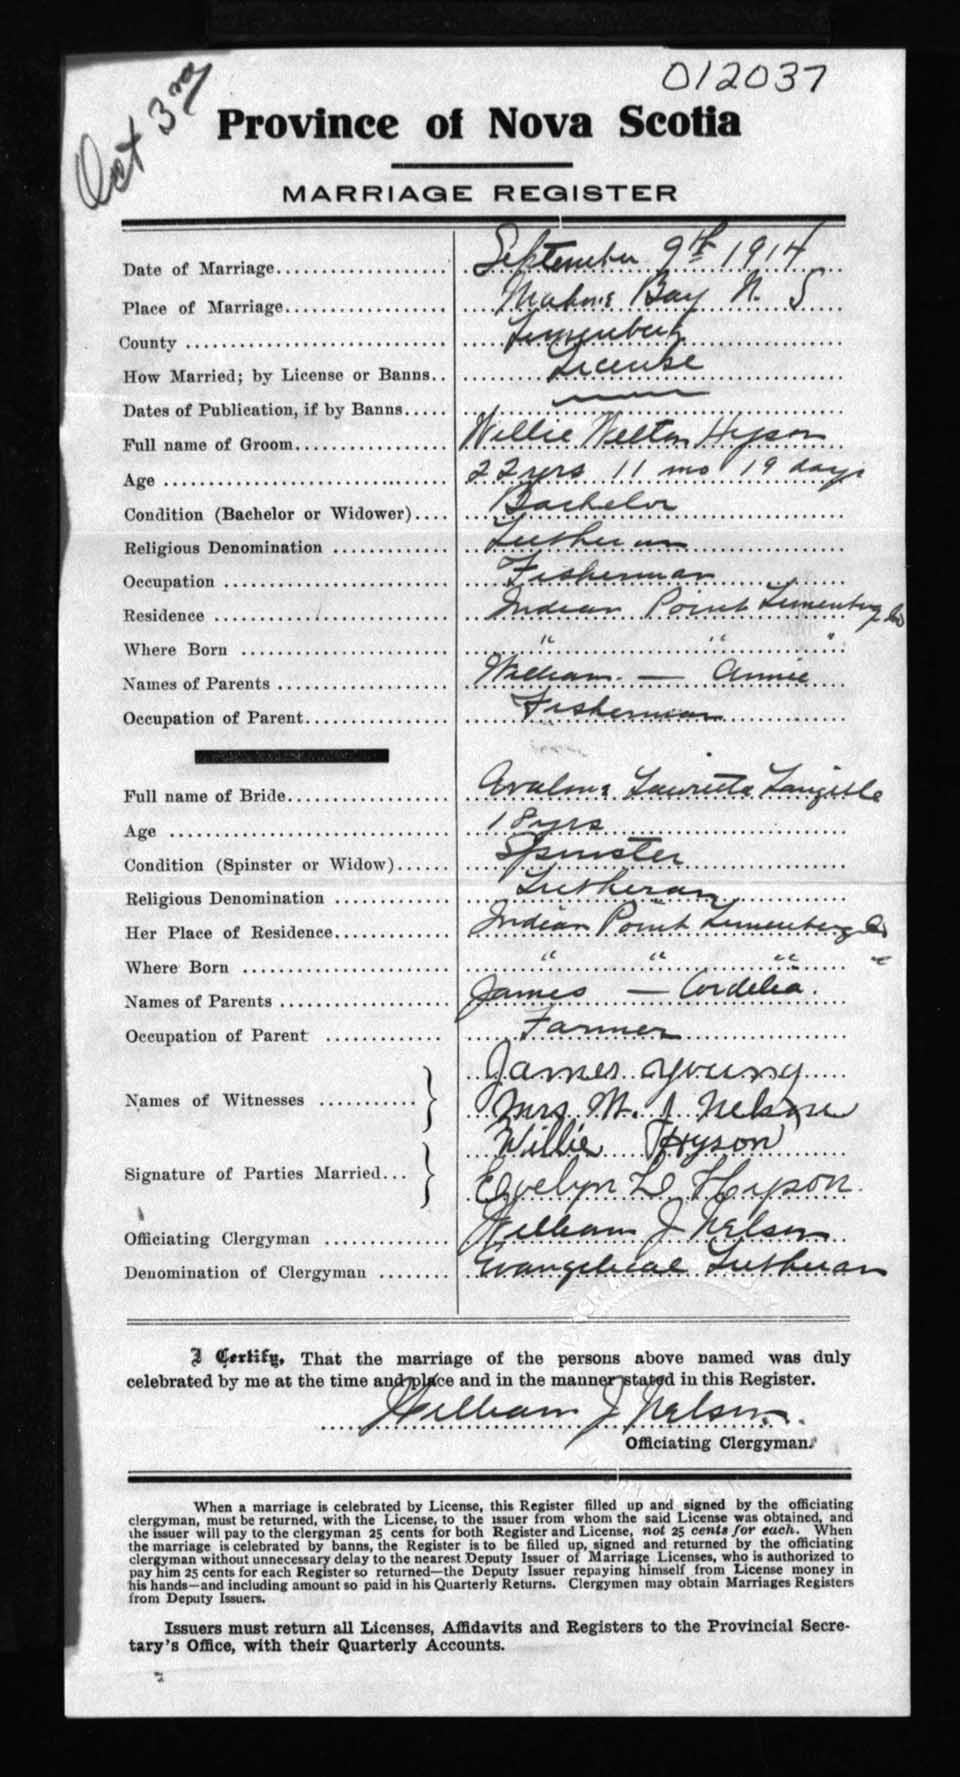 012037
Oct 3rd
Province of Nova Scotia
MARRIAGE REGISTER
Date of Marriage.................... September 9th 1914
Place of Marriage................... Mahone Bay N. S
County .............................. Lunenburg
How Married; by License or Banns.. License
Dates of Publication, if by Banns.....
Full name of Groom.................. Willie Welton Hyson
Age ................................. 22 yrs 11 mo 19 days
Condition (Bachelor or Widower).... Bachelor
Religious Denomination ............. Lutheran
Occupation .......................... Fisherman
Residence ........................... Indian Point Lunenburg Co
Where Born ........................ " " "
Names of Parents ................... William — Annie
Occupation of Parent................ Fisherman
Full name of Bride.................. Lauretta
Age ................................. 18 yrs
Condition (Spinster or Widow)...... Spinster
Religious Denomination ............. Lutheran
Her Place of Residence.............. Indian Point Lunenburg Co
Where Born ........................ " " " "
Names of Parents ................... James — Cordelia.
Occupation of Parent ............... Farmer
James Young
Names of Witnesses ............ Mrs W. J Nelson
Willie Hyson
Signature of Parties Married... Evelyn L Hyson
Officiating Clergyman .............. William J Nelson
Denomination of Clergyman ........ Evangelical Lutheran
I Certify, That the marriage of the persons above named was duly
celebrated by me at the time and place and in the manner stated in this Register.
William J Nelson
Officiating Clergyman.
When a marriage is celebrated by License, this Register filled up and signed by the officiating
clergyman, must be returned, with the License, to the issuer from whom the said License was obtained, and
the issuer will pay to the clergyman 25 cents for both Register and License, not 25 cents for each. When
the marriage is celebrated by banns, the Register is to be filled up, signed and returned by the officiating
clergyman without unnecessary delay to the nearest Deputy Issuer of Marriage Licenses, who is authorized to
pay him 25 cents for each Register so returned—the Deputy Issuer repaying himself from License money in
his hands—and including amount so paid in his Quarterly Returns. Clergymen may obtain Marriages Registers
from Deputy Issuers.
Issuers must return all Licenses, Affidavits and Registers to the Provincial Secre-
tary's Office, with their Quarterly Accounts.